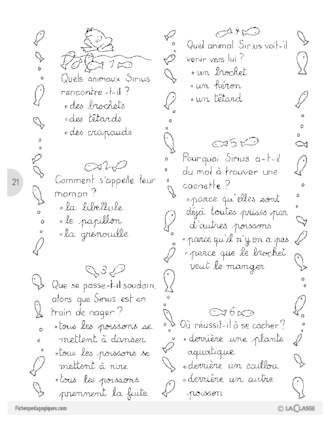 1
Quels animaux Sirius
rencontre-t-il ?
• des brochets
• des têtards
• des crapauds
2
Comment s'appelle leur
maman ?
• la libellule
• le papillon
• la grenouille
3
Que se passe-t-il soudain,
alors que Sirius est en
train de nager ?
• tous les poissons se
mettent à danser
• tous les poissons se
mettent à rire
• tous les poissons
prennent la fuite
4
Quel animal Sirius voit-il
venir vers lui ?
• un brochet
• un héron
• un têtard
5
Pourquoi Sirius a-t-il
du mal à trouver une
cachette ?
• parce qu'elles sont
déjà toutes prises par
d'autres poissons
• parce qu'il n'y en a pas
• parce que le brochet
veut le manger
6
Où réussit-il à se cacher ?
• derrière une plante
aquatique
• derrière un caillou
• derrière un autre
poisson
21
Fichespedagogiques.com
© LA CLASSE